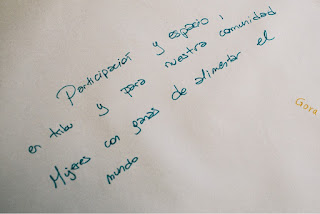 Participación y espacio
en tribu y para nuestra comunidad
Mujeres con ganas de alimentar el
mundo
Gara